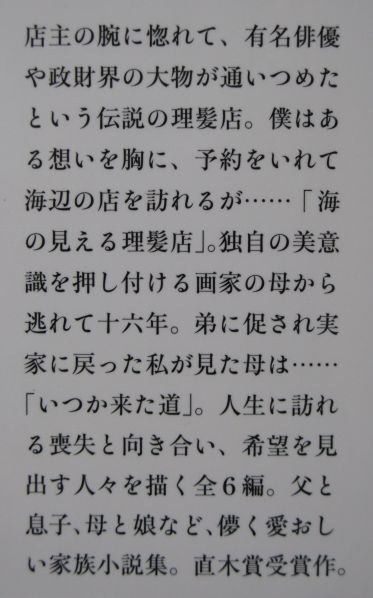 店主の腕に惚れて、有名俳優
や政財界の大物が通いつめた
という伝説の理髪店。僕はあ
る想いを胸に、予約をいれて
海辺の店を訪れるが……「海
の見える理髪店」。独自の美意
識を押し付ける画家の母から
逃れて十六年。弟に促され実
家に戻った私が見た母は……
「いつか来た道」。人生に訪れ
る喪失と向き合い、希望を見
出す人々を描く全6編。父と
息子、母と娘など、儚く愛おし
い家族小説集。直木賞受賞作。